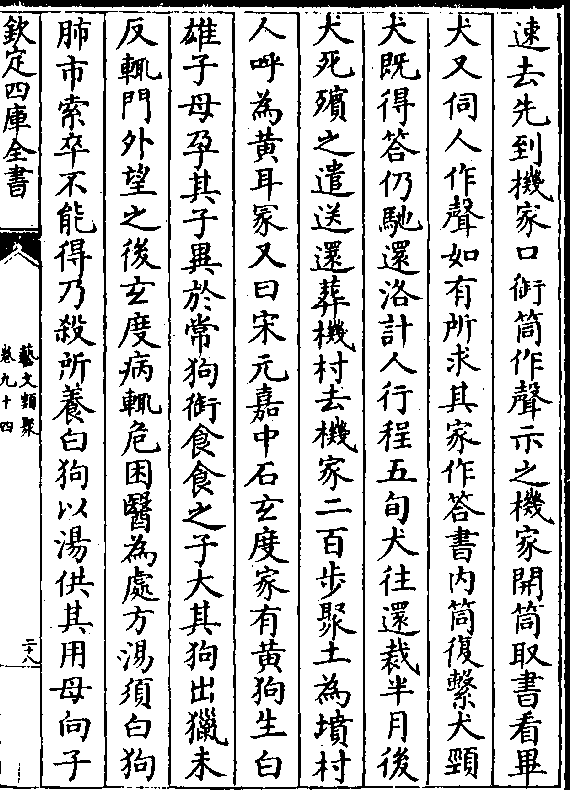 速去先到機家口銜筒作聲示之機家開筒取書看畢
犬又伺人作聲如有所求其家作答書内筒復繫犬頸
犬既得答仍馳還洛計人行程五旬犬往還裁半月後
犬死殯之遣送還葬機村去機家二百步聚土為墳村
人呼為黄耳冢又曰宋元嘉中石玄度家有黄狗生白
雄子母孕其子異於常狗銜食食之子大其狗出獵未
反輒門外望之後玄度病輒危困醫為處方湯須白狗
肺市索卒不能得乃殺所養白狗以湯供其用母向子
欽定四庫全書
藝文類聚
卷九十四
二十八